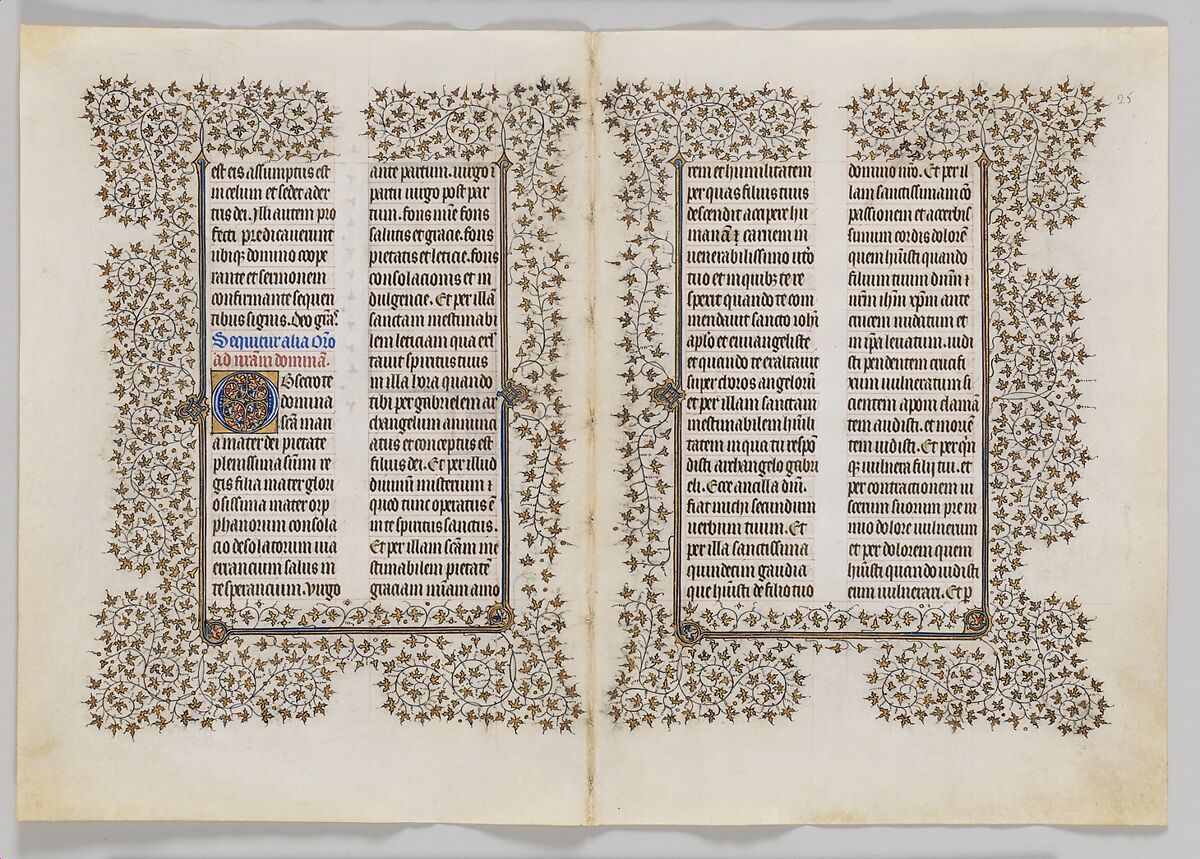 est eis assumptus est
in celum et sedet a dex
tris dei. Illi autem pro
fecti predicauerunt
ubiq; domino coope
rante et sermonem
confirmante sequen
tibus signis. Deo grãs.
Sequitur alia Orõ
ad nr̃am dominã.
Obsecro te
domina
scã mari
a mater dei pietate
plenissima sũmi re
gis filia mater glori
osissima mater orp
phanorum consola
cio desolatorum uia
errancium salus in
te sperancium. Uirgo
ante partum. uirgo ĩ
partu uirgo post par
tum. fons mie fons
salutis et gracie. fons
pietatis et leticie. fons
consolacionis et in
dulgencie. Et per illã
sanctam inestimabi
lem leticiam qua exl
tauit spiritus tuus
in illa hora quando
tibi per gabrielem ar
changelum annunci
atus et conceptus est
filius dei. Et per illud
diuinũ misterium ꝛ
quod tunc operatus ẽ
in te spiritus sanctus.
Et per illam scãm ine
stimabilem pietatẽ
graciam miam amo
rem et humilitatem
per quas filius tuus
descendit accipere hu
manã ꝛ carnem in
uenerabilissimo utero
tuo et in quibꝫ te re
spexit quando te com
mendauit sancto iohi
apło et euuangeliste
et quando te exaltauit
super choros angelorũ
et per illam sanctam
inestimabilem hũili
tatem in qua tu respõ
disti archangelo gabri
eli. Ecce ancilla dñi.
fiat michi secundum
uerbum tuum. Et
per illa sanctissima
quindecim gaudia
que hũisti de filio tuo
25
domino nr̃o. Et per il
lam sanctissimam cõ
passionem et acerbis
simum cordis dolorẽ
quem hũisti quando
filium tuum dñm ꝛ
nr̃m ihm̃ xp̃m ante
crucem nudatum et
in ip̃a leuatum. uidi
sti pendentem crucifi
xum uulneratum si
cientem apponi clamã
tem audisti. et moriẽ
tem uidisti. Et per qñ
qꝫ uulnera filii tui. et
per contractionem ui
scerum suorum pre ni
mio dolore uulnerum
et per dolorem quem
hũisti quando uidisti
eum uulnerari. Et ꝑ